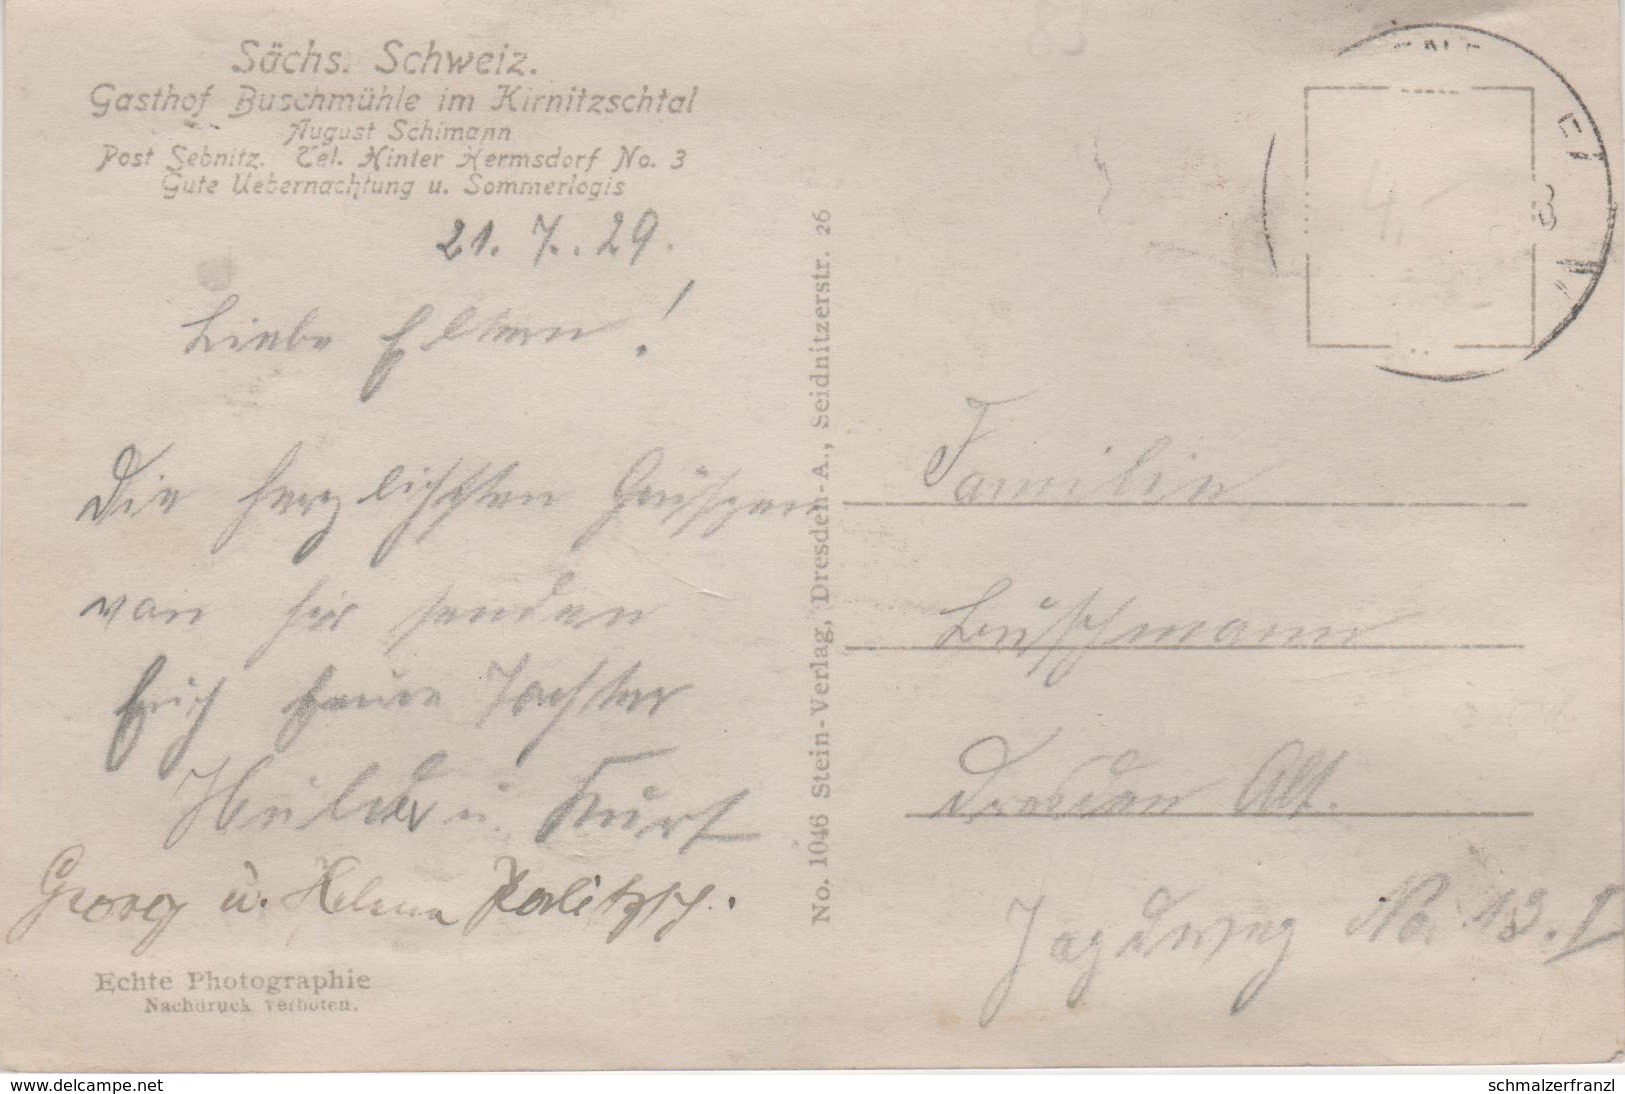 Sächs. Schweiz.
Gasthof Buschmühle im Kirnitzschtal
August Schimann
Post Sebnitz. Tel. Hinter Hermsdorf No. 3
Gute Uebernachtung u. Sommerlogis
21. 7. 29.
Liebe Eltern!
Die herzlichsten Grüsse
von hir senden
Euch Eeure Tochter
Hulda u. Kurt
Georg u. Helena
Echte Photographie
Nachdruck verboten.
No. 1046 Stein-Verlag, Dresden-A., Seidnitzerstr. 26
4,-
Familie
Buschmann
Dresden Alt.
Jagdweg No. 13. I
www.delcampe.net
schmalzerfranzl